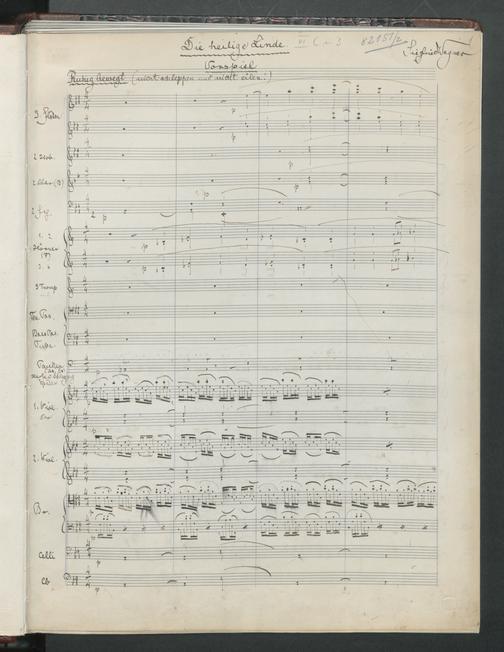 Die heilige Linde.
82151/2
Siegfried Wagner
Vorspiel
Ruhig bewegt (nicht schleppen nicht eilen!)
3 Flöten
2 Hob.
2 Clar. (B)
2 Fag.
1. 2
Hörner
(F)
3. 4
3 Tromp
Ten Pos.
Bass Pos.
Tuba
Pauken
1. Viol.
2. Viol
Br.
Celli
Cb